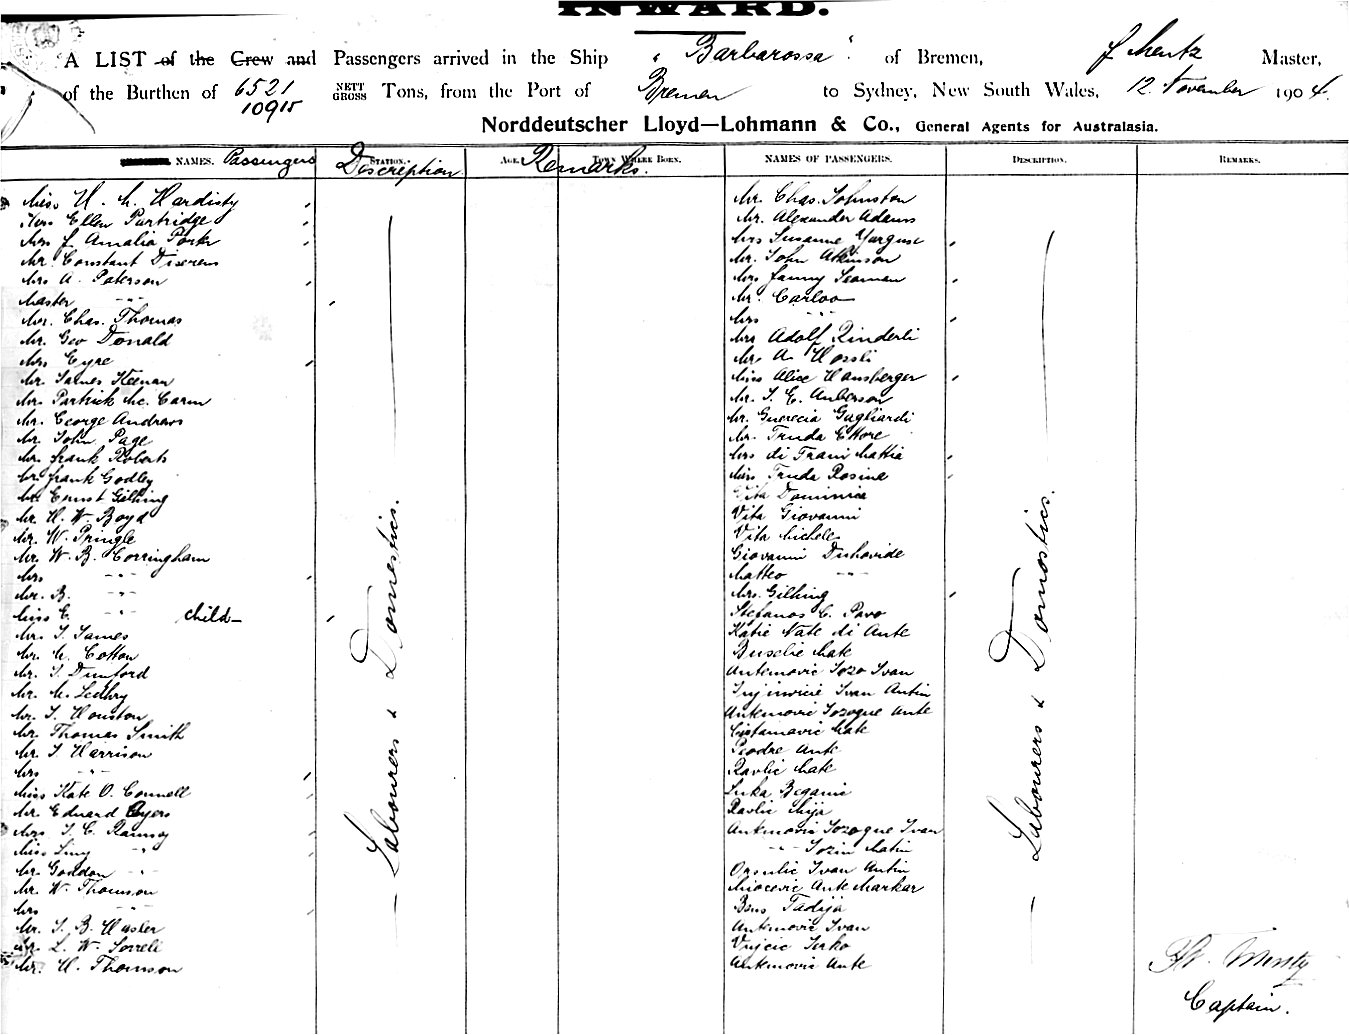 INWARD.
A LIST of the Crew and Passengers arrived in the Ship "Barbarossa" of Bremen, F Mentz Master,
of the Burthen of 6521 NETT Tons, from the Port of Bremen to Sydney, New South Wales, 12. November 1904.
10915 GROSS
Norddeutscher Lloyd—Lohmann & Co., General Agents for Australasia.
NAMES. Passengers
STATION. Description
AGE.
TOWN WHERE BORN.
Remarks.
NAMES OF PASSENGERS.
DESCRIPTION.
REMARKS.
Miss H. M. Hardisty
Miss Ellen Partridge
Mrs F Amalia Porter
Mr. Constant Diserens
Mrs A. Paterson
Master -"-
Mr. Chas. Thomas
Mr. Geo Donald
Mrs Eyre
Mr. James Keenan
Mr. Partrick Mc. Carm
Mr. George Andrews
Mr John Page
Mr. Frank Roberts
Mr Frank Godley
Mr Ernst Gilhing
Mr. H. W. Boyd
Mr. W. Pringle
Mr. W. B. Corringham
Mrs -"-
Mr. B. -"-
Miss E. -"- child
Mr. J. James
Mr. M. Cotton
Mr. J. Dunford
Mr. M. Leahry
Mr. J. Houston
Mr. Thomas Smith
Mr. J. Harrison
Mrs -"-
Miss Kate O. Connell
Mr. Eduard Ayers
Mrs. J. C. Ramsay
Miss Liny -"-
Mr. Gordon -"-
Mr. W. Thomson
Mrs -"-
Mr. J. B. Hasler
Mr. L. W. Sorrell
Mr. H. Thomson
Labourers & Domestics.
Mr. Chas. Johnston
Mr. Alexander Adams
Mrs Susanne Yarguse
Mr. John Atkinson
Mrs Fanny Seaman
Mr. Carloo
Mrs -"-
Mr. Adolf Rinderli
Mr. A. Hossli
Miss Alice Hansberger
Mr. J. E. Anberson
Mr. Guerecia Gagliardi
Mr. Truda Ettore
Mrs di Trani Mattia
Miss Truda Rosina
Vita Dominica
Vita Giovanni
Vita Michele
Giovanni Duhovide
Matteo -"-
Mrs. Gilhing
Stefanos C. Pavo
Katie Nate di Ante
Buselie Mate
Antenovic Jozo Ivan
Injinvicie Ivan Antin
Antenovic Jozogue Ante
Cistamavic Mate
Peodre Ante
Ravlic Mate
Luka Beganis
Ravlic Mija
Antenovic Jozogue Ivan
-"- Jozin Matin
Orsulic Ivan Antin
Miocevic Ante Markar
Bens Tadija
Antenovic Ivan
Vujcic Jerko
Antenovic Ante
Labourers & Domestics.
Captain.